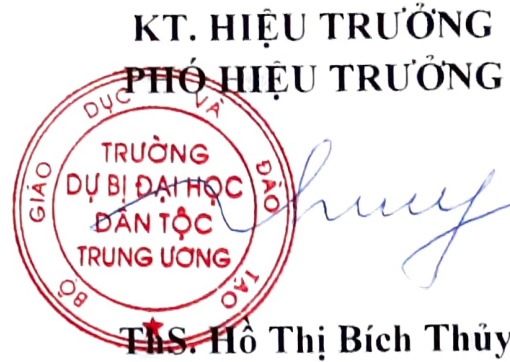 KT. HIỆU TRƯỞNG
PHÓ HIỆU TRƯỞNG
BỘ GIÁO DỤC VÀ ĐÀO TẠO
TRƯỜNG
DỰ BỊ ĐẠI HỌC
DÂN TỘC
TRUNG ƯƠNG
ThS. Hồ Thị Bích Thủy